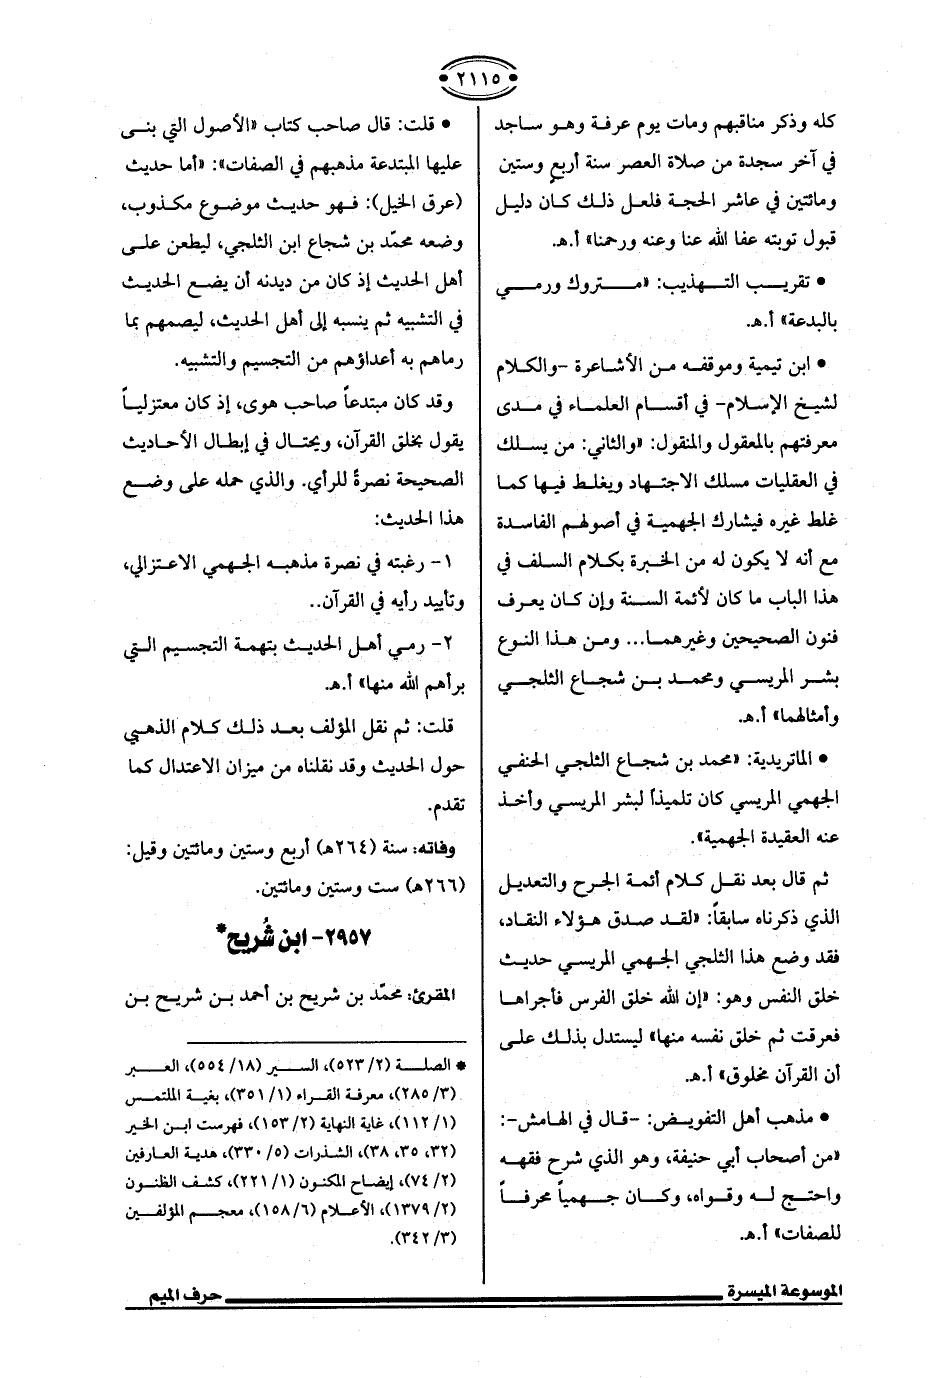 ٢١١٥
كله وذكر مناقبهم ومات يوم عرفة وهو ساجد
في آخر سجدة من صلاة العصر سنة أربع وستين
ومائتين في عاشر الحجة فلعل ذلك كان دليل
قبول توبته عفا الله عنا وعنه ورحمنا» أ.هـ.
• تقريب التهذيب: «متروك ورمي
بالبدعة» أ.هـ.
• ابن تيمية وموقفه من الأشاعرة -والكلام
لشيخ الإسلام- في أقسام العلماء في مدى
معرفتهم بالمعقول والمنقول: «والثاني: من يسلك
في العقليات مسلك الاجتهاد ويغلط فيها كما
غلط غيره فيشارك الجهمية في أصولهم الفاسدة
مع أنه لا يكون له من الخبرة بكلام السلف في
هذا الباب ما كان لأئمة السنة وإن كان يعرف
فنون الصحيحين وغيرهما... ومن هذا النوع
بشر المريسي ومحمد بن شجاع الثلجي
وأمثالهما» أ.هـ.
• الماتريدية: «محمد بن شجاع الثلجي الحنفي
الجهمي المريسي كان تلميذاً لبشر المريسي وأخذ
عنه العقيدة الجهمية».
ثم قال بعد نقل كلام أئمة الجرح والتعديل
الذي ذكرناه سابقاً: «لقد صدق هؤلاء النقاد،
فقد وضع هذا الثلجي الجهمي المريسي حديث
خلق النفس وهو: «إن الله خلق الفرس فأجراها
فعرقت ثم خلق نفسه منها» ليستدل بذلك على
أن القرآن مخلوق» أ.هـ.
• مذهب أهل التفويض: -قال في الهامش-:
«من أصحاب أبي حنيفة، وهو الذي شرح فقهه
واحتج له وقواه، وكان جهمياً محرفاً
للصفات» أ.هـ.
• قلت: قال صاحب كتاب «الأصول التي بنى
عليها المبتدعة مذهبهم في الصفات»: «أما حديث
(عرق الخيل): فهو حديث موضوع مكذوب،
وضعه محمّد بن شجاع ابن الثلجي، ليطعن على
أهل الحديث إذ كان من ديدنه أن يضع الحديث
في التشبيه ثم ينسبه إلى أهل الحديث، ليصمهم بما
رماهم به أعداؤهم من التجسيم والتشبيه.
وقد كان مبتدعاً صاحب هوى، إذ كان معتزلياً
يقول بخلق القرآن، ويحتال في إبطال الأحاديث
الصحيحة نصرةً للرأي. والذي حمله على وضع
هذا الحديث:
١- رغبته في نصرة مذهبه الجهمي الاعتزالي،
وتأييد رأيه في القرآن..
٢- رمي أهل الحديث بتهمة التجسيم التي
برأهم الله منها» أ.هـ.
قلت: ثم نقل المؤلف بعد ذلك كلام الذهبي
حول الحديث وقد نقلناه من ميزان الاعتدال كما
تقدم.
وفاته: سنة (٢٦٤هـ) أربع وستين ومائتين وقيل:
(٢٦٦هـ) ست وستين ومائتين.
٢٩٥٧- ابن شُريح*
المقرئ: محمّد بن شريح بن أحمد بن شريح بن
* الصلة (٢/ ٥٢٣)، السير (١٨/ ٥٥٤)، العبر
(٣/ ٢٨٥)، معرفة القراء (١/ ٣٥١)، بغية الملتمس
(١/ ١١٢)، غاية النهاية (٢/ ١٥٣)، فهرست ابن الخير
(٣٢، ٣٥، ٣٨)، الشذرات (٥/ ٣٣٠)، هدية العارفين
(٢/ ٧٤)، إيضاح المكنون (١/ ٢٢١)، كشف الظنون
(٢/ ١٣٧٩)، الأعلام (٦/ ١٥٨)، معجم المؤلفين
(٣/ ٣٤٢).
الموسوعة الميسرة
حرف الميم